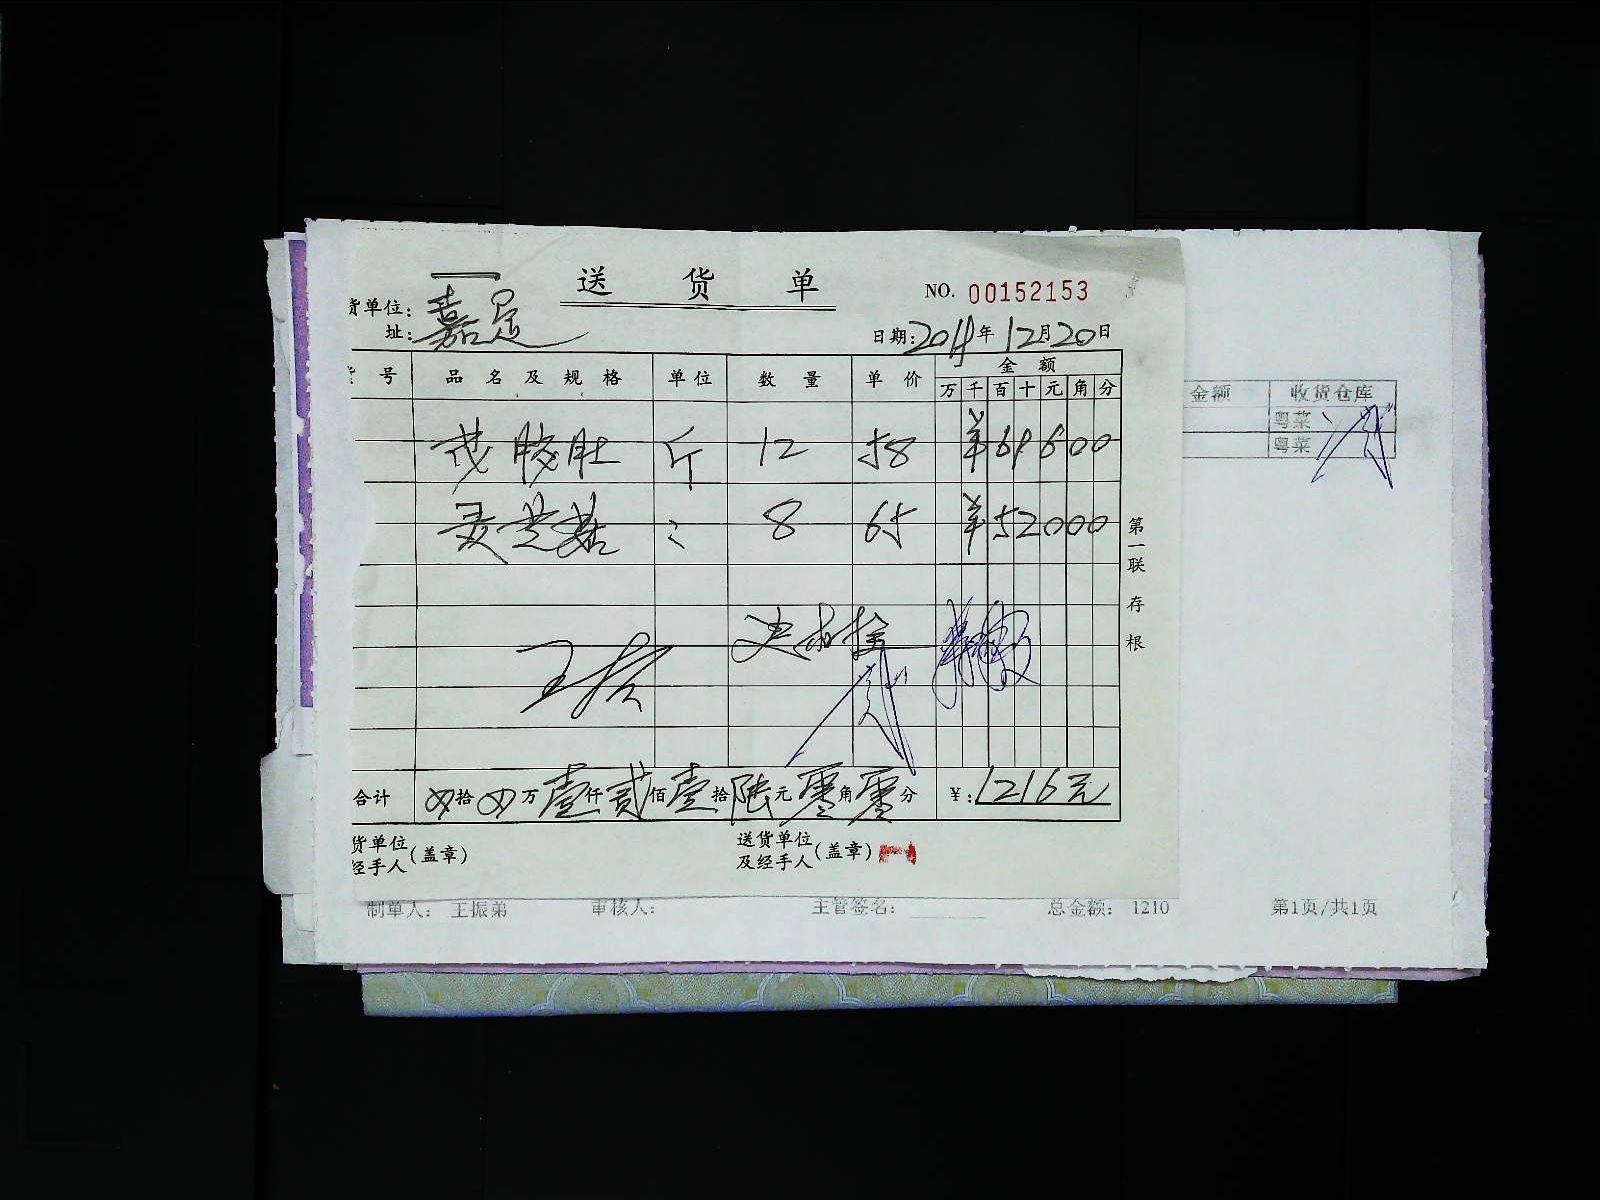 送 货 单
NO. 00152153
货单位: 嘉定
址:
日期: 2011年12月20日
号 品名及规格 单位 数量 单价 金额
万 千 百 十 元 角 分
胶肚 斤 12 58 ¥69600
灵芝菇 〃 8 65 ¥52000
第一联 存根
合计 拾 万 壹仟 贰佰 壹拾 陆元 零角 零分 ¥: 1216元
货单位
经手人 (盖章)
送货单位
及经手人 (盖章)
金额 收货仓库
粤菜
粤菜
制单人: 王振弟 审核人: 主管签名: 总金额: 1210 第1页/共1页